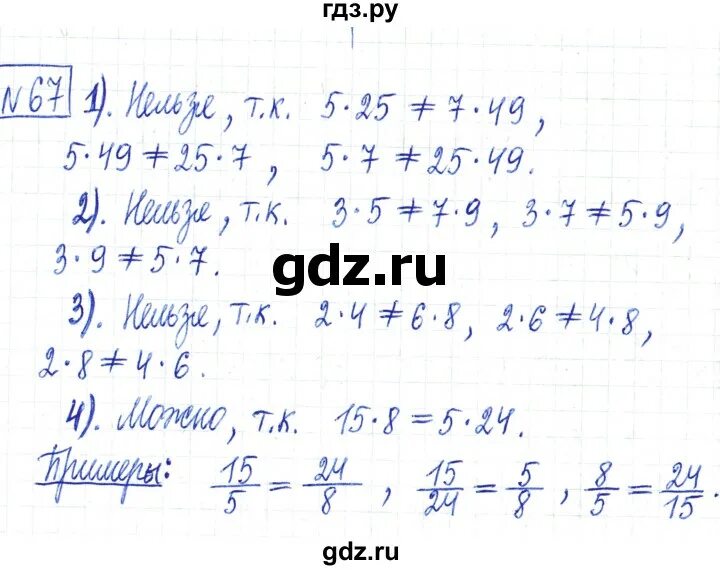 гдз.ру
№67 1). Нельзя, т.к. 5·25 ≠ 7·49,
5·49 ≠ 25·7, 5·7 ≠ 25·49.
2). Нельзя, т.к. 3·5 ≠ 7·9, 3·7 ≠ 5·9,
3·9 ≠ 5·7.
gdz.ru
3). Нельзя, т.к. 2·4 ≠ 6·8, 2·6 ≠ 4·8,
2·8 ≠ 4·6.
4). Можно, т.к. 15·8 = 5·24.
Примеры: 15/5 = 24/8, 15/24 = 5/8, 8/5 = 24/15.
gdz.ru